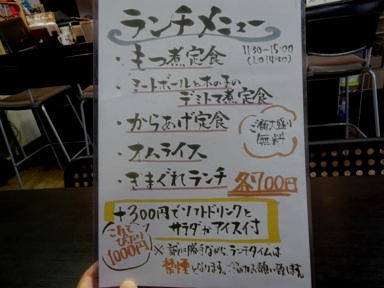 ランチメニュー
11:30~15:00
(LO14:30)
・もつ煮定食
・ミートボールと木の子の
デミトマ煮定食
・からあげ定食
ご飯大盛り
無料
・オムライス
・きまぐれランチ
各700円
+300円でソフトドリンクと
サラダかアイス付
これで
ぴったり
1000円
※ 誠に勝手ながらランチタイムは
禁煙となります。ご協力お願い致します。